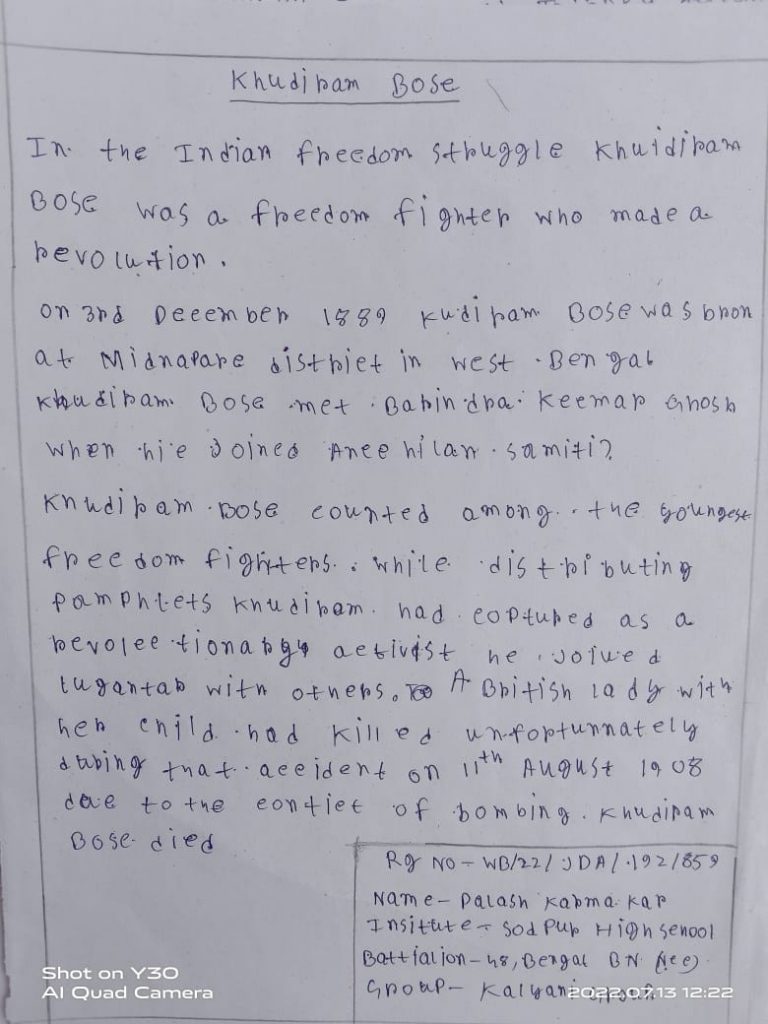 Khudiram Bose
In the Indian freedom struggle Khuidiram
Bose was a freedom fighter who made a
revolution.
on 3rd Deeember 1889 Kudiram Bose was bron
at Midnapare distriet in west Bengal
Khudiram Bose met Barindra Keemar Ghosh
when hie Joined Aneehilan samiti?
Khudiram Bose counted among the youngest
freedom fighters. while distributing
pamphlets Khudiram had coptured as a
revoleetionary activist he joived
Iugantar with others. A British lady with
her child had killed unfortunnately
during that aceident on 11th August 1908
due to the contiet of bombing. Khudiram
Bose died
Rg No - WB/22/JDA/192/859
Name - Palash Karmakar
Insitute - Sodpur High senool
Battialion - 48, Bengal BN
Group - Kalyani
Shot on Y30
AI Quad Camera
2022.07.13 12:22